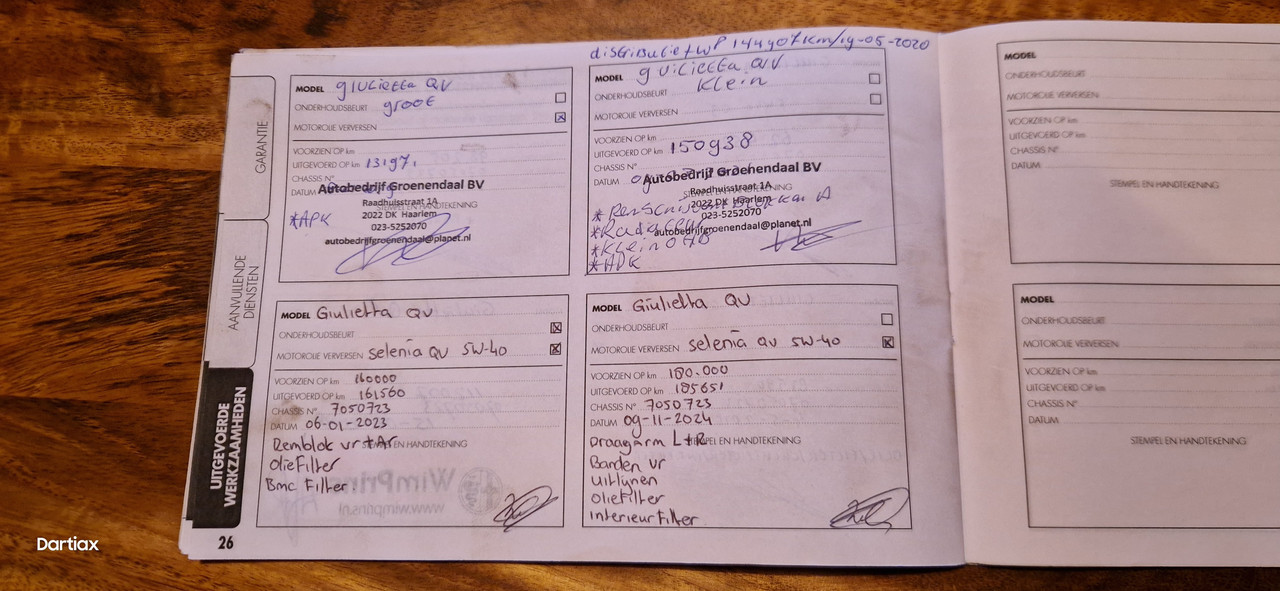 distributie+WP 144907km/14-05-2020
GARANTIE
AANVULLENDE
DIENSTEN
UITGEVOERDE
WERKZAAMHEDEN
MODEL GIULIETTA QV
ONDERHOUDSBEURT groot
MOTOROLIE VERVERSEN
VOORZIEN OP km
UITGEVOERD OP km
CHASSIS N°
DATUM
STEMPEL EN HANDTEKENING
Autobedrijf Groenendaal BV
Raadhuisstraat 1A
2022 DK Haarlem
*APK
023-5252070
autobedrijfgroenendaal@planet.nl
MODEL gUiLiETTA QV
ONDERHOUDSBEURT Klein
MOTOROLIE VERVERSEN
VOORZIEN OP km
UITGEVOERD OP km 150938
CHASSIS N°
DATUM
Autobedrijf Groenendaal BV
Raadhuisstraat 1A
STEMPEL EN HANDTEKENING
2022 DK Haarlem
023-5252070
autobedrijfgroenendaal@planet.nl
*Klein
*APK
MODEL Giulietta QV
ONDERHOUDSBEURT
MOTOROLIE VERVERSEN selenia QV 5W-40
VOORZIEN OP km 160000
UITGEVOERD OP km 161560
CHASSIS N° 7050723
DATUM 06-01-2023
STEMPEL EN HANDTEKENING
Remblok vr + Ar
Oliefilter
Bmc Filter.
MODEL Giulietta QV
ONDERHOUDSBEURT
MOTOROLIE VERVERSEN selenia QV 5W-40
VOORZIEN OP km 180.000
UITGEVOERD OP km 185651
CHASSIS N° 7050723
DATUM 09-11-2024
STEMPEL EN HANDTEKENING
Draagarm L+R
Banden vr
Uitlijnen
Oliefilter
interieurfilter
MODEL
ONDERHOUDSBEURT
MOTOROLIE VERVERSEN
VOORZIEN OP km
UITGEVOERD OP km
CHASSIS N°
DATUM
STEMPEL EN HANDTEKENING
MODEL
ONDERHOUDSBEURT
MOTOROLIE VERVERSEN
VOORZIEN OP km
UITGEVOERD OP km
CHASSIS N°
DATUM
STEMPEL EN HANDTEKENING
26
Dartiax